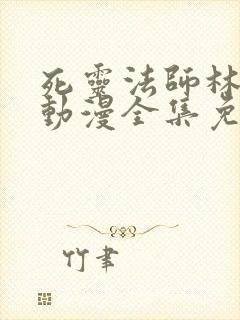 死靈法師林
動漫全集免
竹聿